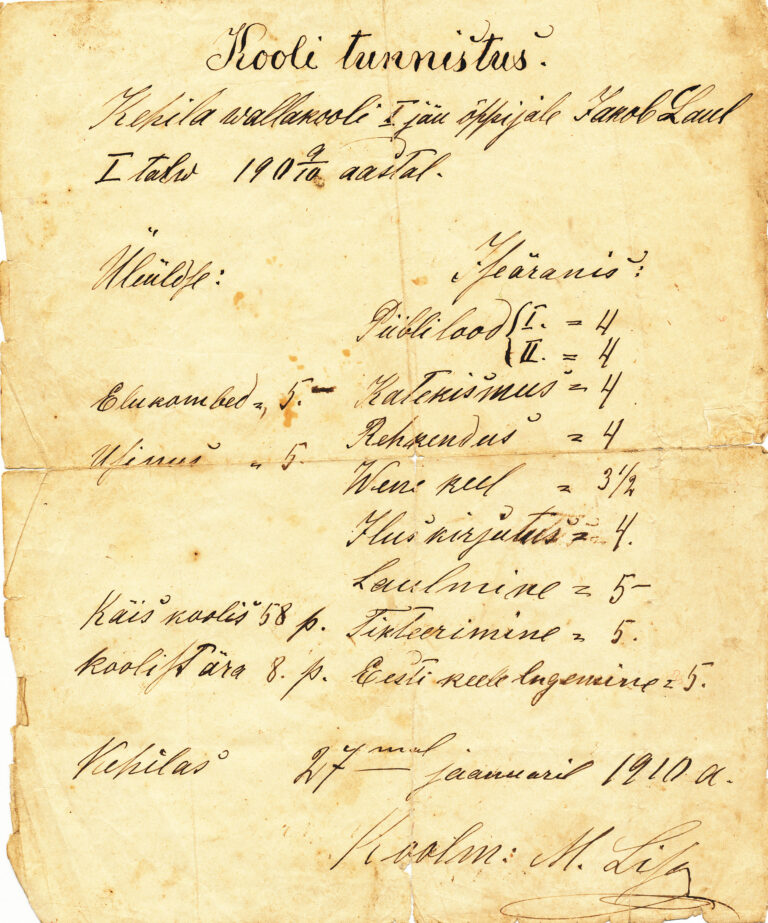 Kooli tunnistus.
Kehila wallakooli I jäu õppijale Jakob Laul
I talw 190 9/10 aastal.
Üleüldse:
Elukombed = 5. –
Usinus = 5
Käis koolis 58 p.
koolist ära 8. p.
Iseäranis:
Piibli lood { I. = 4
II. = 4
Katekismus = 4
Rehkendus = 4
Wene keel = 3 1/2
Ilus kirjutus = 4.
Laulmine = 5 –
Tikteerimine = 5.
Eesti keele lugemine = 5.
Kehilas 27mal jaanuaril 1910 a.
Koolm: M.